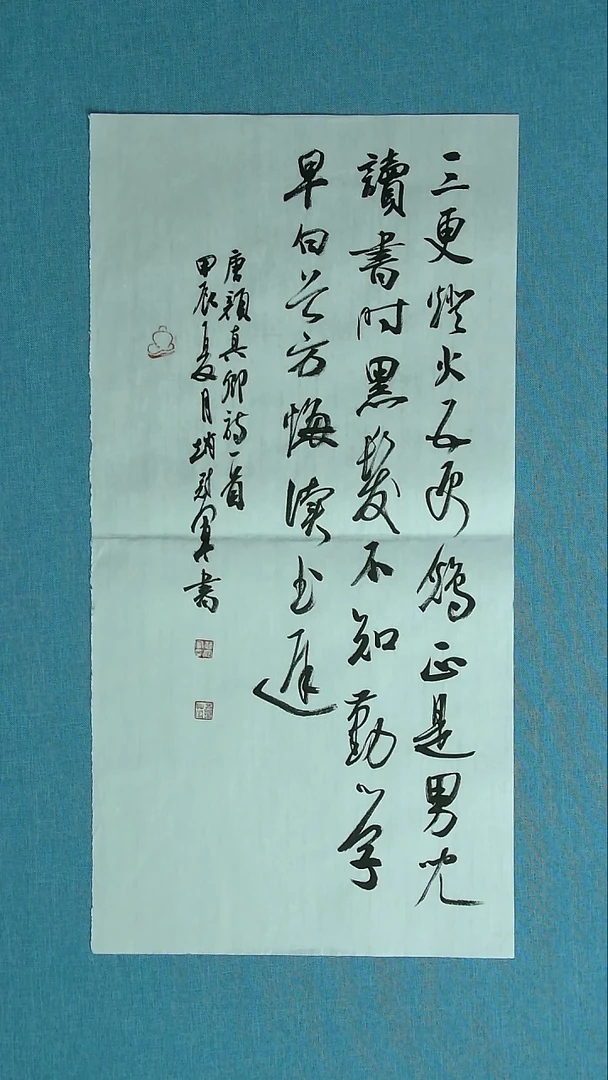 三更燈火五更鷄正是男兒
讀書时黑髮不知勤學
早白首方悔读书遲
唐顏真卿詩一首
甲辰夏月趙軍書